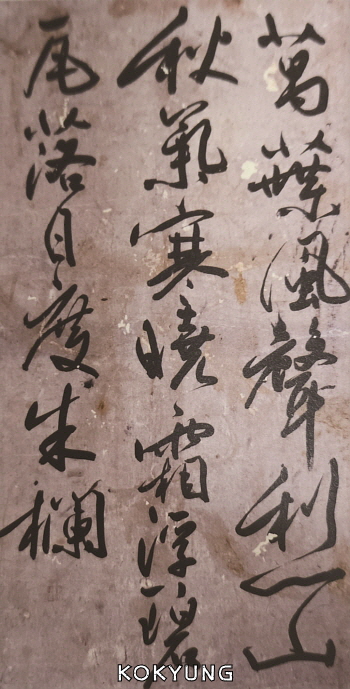 萬葉風聲利一山
秋氣寒曉霜浮碧
瓦落日度朱欄
KOKYUNG